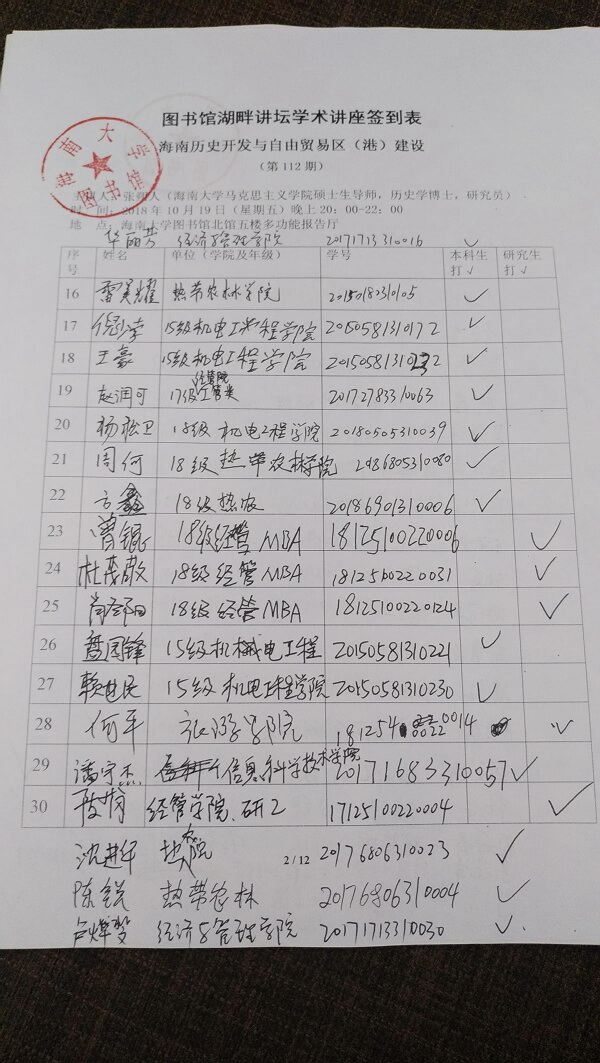 图书馆湖畔讲坛学术讲座签到表
海南历史开发与自由贸易区（港）建设
（第112期）
海南大学图书馆
（海南大学马克思主义学院硕士生导师，历史学博士，研究员）
时　间：2018年10月19日（星期五）晚上20：00-22：00
地　点：海南大学图书馆北馆五楼多功能报告厅
华丽芳 经济与管理学院 20171713310016 ✓
序号 姓名 单位（学院及年级） 学号 本科生打√ 研究生打√
16 热带农林学院 20150182310105 ✓
17 15级机电工程学院 20150581310172 ✓
18 王豪 15级机电工程学院 ✓
19 赵润可 17级工管类 经管院 20172783310063 ✓
20 杨松卫 18级 机电工程学院 20180505310039 ✓
21 周何 18级热带农林学院 ✓
22 方鑫 18级热农 20186901310006 ✓
23 曾锟 18级经管MBA 18125100220006 ✓
24 杜茂敢 18级经管MBA 18125100220031 ✓
25 肖邵阳 18级经管MBA 18125100220124 ✓
26 国锋 15级机械电工程 20150581310221 ✓
27 赖世民 15级机电工程学院 20150581310230 ✓
28 何平 旅游学院 ✓
29 潘守杰 信息科学技术学院 20171683310057 ✓
30 经管学院.研2 17125100220004 ✓
沈进华 热农院 2/12 20176806310023 ✓
陈锐 热带农林 20176806310004 ✓
卢烨 经济与管理学院 20171713310030 ✓